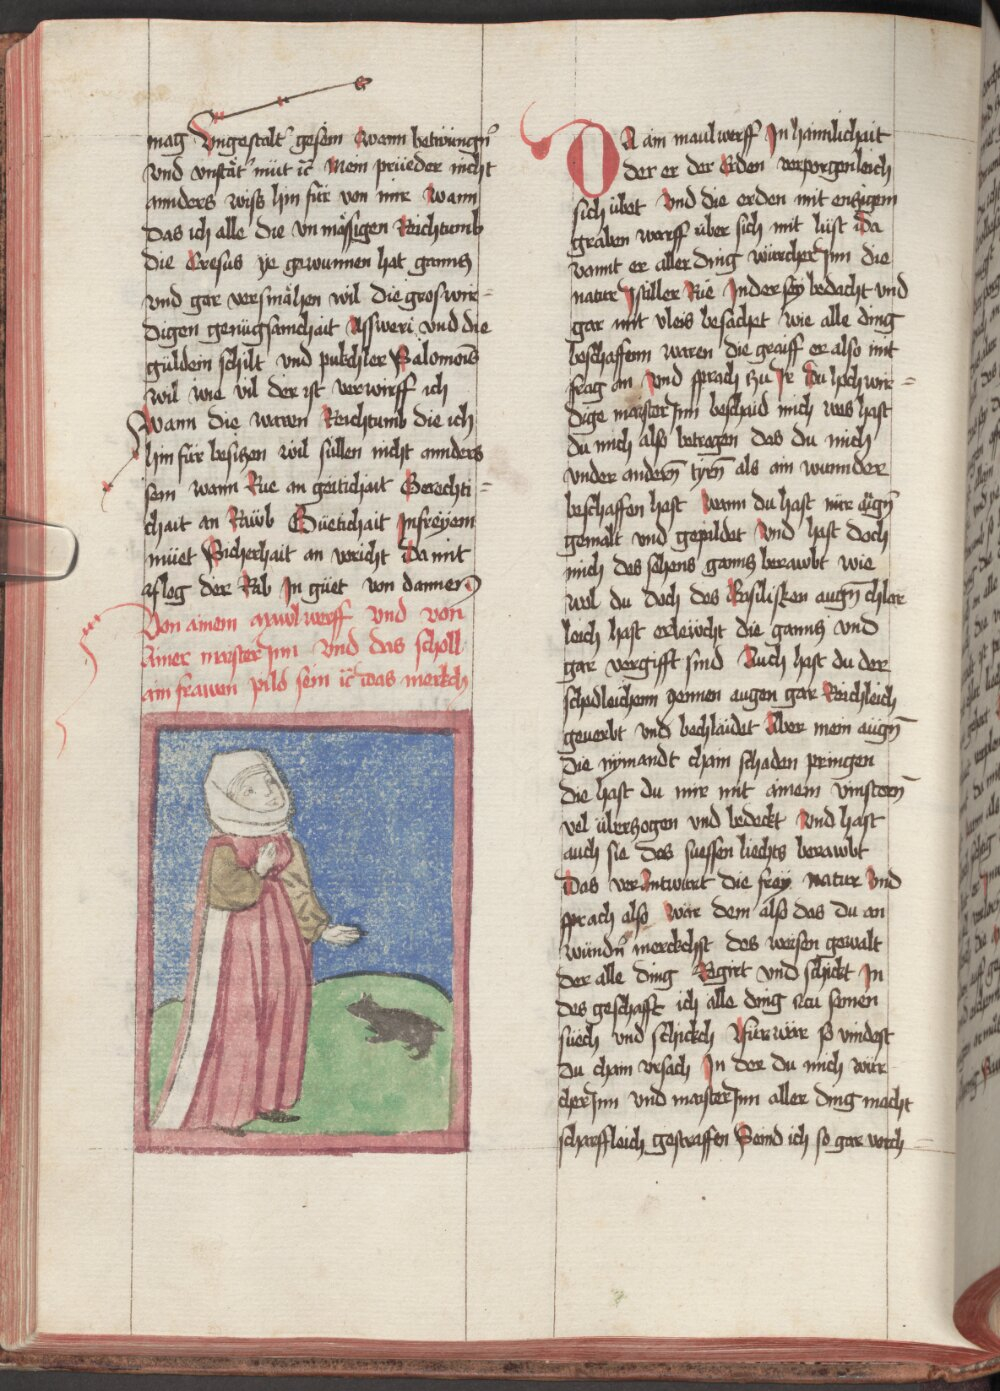 mag Vngestalt gesein Wann betrüingnus
vnd vnstät müt ꝛc Mein prüeder nicht
annders wiss hin für von mir Wann
Das ich alle die vn mässigen Reichtumb
die Cresus ye gewunnen hat ganncz
vnd gar versmähen wil die gros wir-
digen genügsamchait Assweri vnd die
güldein schilt vnd pukchler Salomonis
wil wie vil der ist verwirff ich
Wann die waren Reichtumb die ich
hin für besiczen wil süllen nicht annders
sein wann Rue an geitichait Gerechti-
chait an Raüb Güetichait In freyem
müet Sicherhait an voricht Da mit
flog der Rab In güet von dannen
Von ainem mawlwerff Vnd von
Ainer maisterInn Vnd das scholl
ain frawen pild sein ꝛc das merkch
DA ain maulwerff In haimlichait
der er der Erden verporgenleich
sich übet Vnd die erden mit enczigem
graben warff über sich mit lust Da
vannt er aller ding würcherInn die
natur In stiller Rue In der sy bedacht vnd
gar mit vleis besachet wie alle ding
beschaffenn waren die graiff er also mit
frag an Vnd sprach zu Ir Du hochwir-
dige maisterInn beschaid mich was hast
du mich also betrogen das du mich
vnder andern tyrn als ain wunnder
beschaffen hast Wann du hast mir augn
gemalt vnd gepildet Vnd hast doch
mich des sehens gancz berawbt wie
wol du doch des Basilisken augn chlar
leich hast erlewcht die gancz vnd
gar vergifft sind Auch hast du der
schedleichenn hennen augen gar Reichleich
geuerbt vnd bechlaidet Aber mein augn
die nymandt chain schaden pringen
die hast du mir mit ainem vinstern
vel überzogen vnd bedeckt Vnd hast
auch sie des suessen liechts berawbt
Das verAntwurt die frey Natur Vnd
sprach also Wär dem also das du an
wundn merckchst des weisen gewalt
der alle ding Regirt vnd schickt In
des geschafft ich alle ding zu seinen
suech vnd schickch Fürwar so vindest
du chain vrsach In der du mich wür-
cherInn vnd maisterInn aller ding macht
scharffleich gestraffen Seind ich so gar vorch